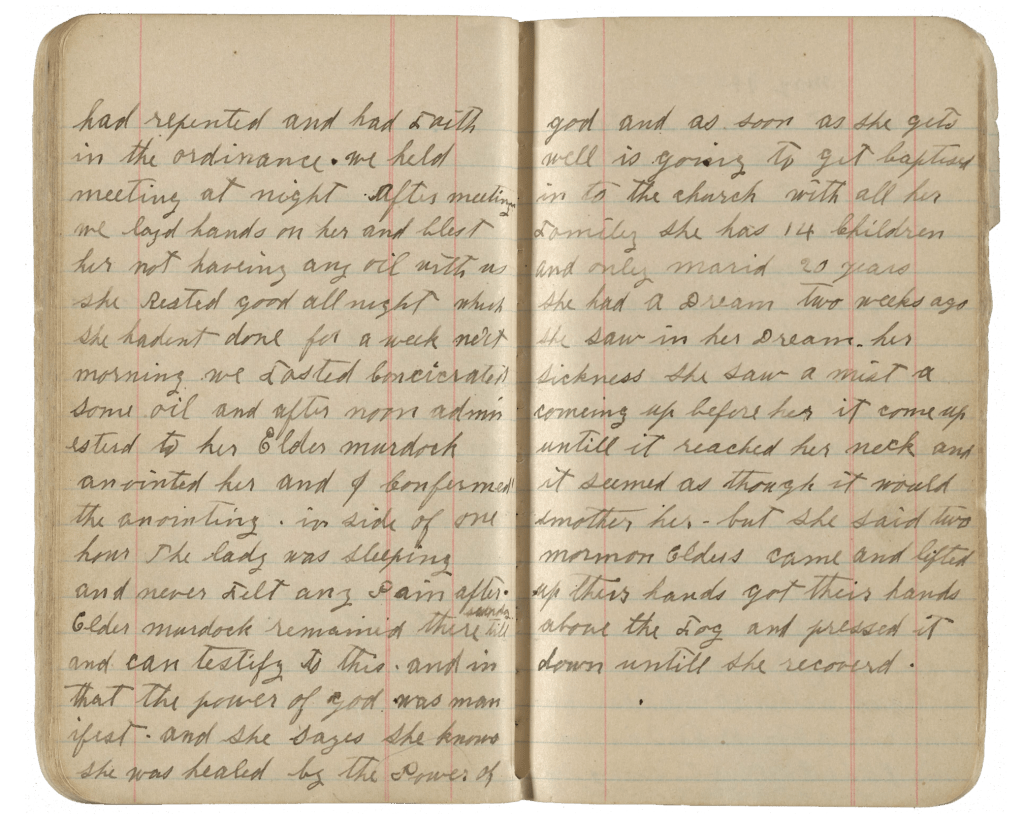 had repented and had Faith
in the ordinance. we held
meeting at night. After meeting
we layd hands on her and blest
her not haveing any oil with us
she Rested good all night which
she hadent done for a week next
morning we Fasted Concicrated
some oil and after noon admin
esterd to her Elder murdock
anointed her and I Confermed
the anointing. in side of one
hour The lady was sleeping
and never Felt any Pain after.
Elder murdock remained there till sunday
and can testify to this. and in
that the power of god was man
ifest. and she sayes she knows
she was healed by the Power of
god and as soon as she gets
well is going to get baptised
in to the church with all her
Family she has 14 Children
and only marid 20 years
she had a Dream two weeks ago
she saw in her Dream. her
sickness she saw a mist a
comeing up before her it come up
untill it reached her neck and
it seemed as though it would
smother her - but she said two
mormon Elders came and lifted
up theirs hands got theirs hands
above the Fog and pressed it
down untill she recoverd.